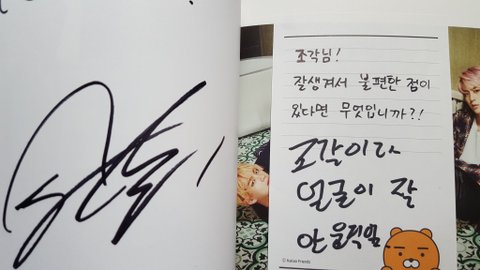 조각님!
잘생겨서 불편한 점이
있다면 무엇입니까?!
조각이라
얼굴이 잘
안움직임
© Kakao Friends